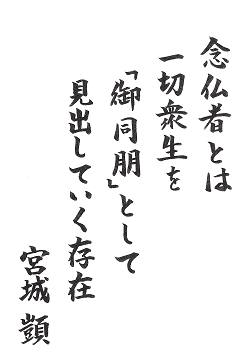 念仏者とは
一切衆生を
「御同朋」として
見出していく存在
宮城 顗